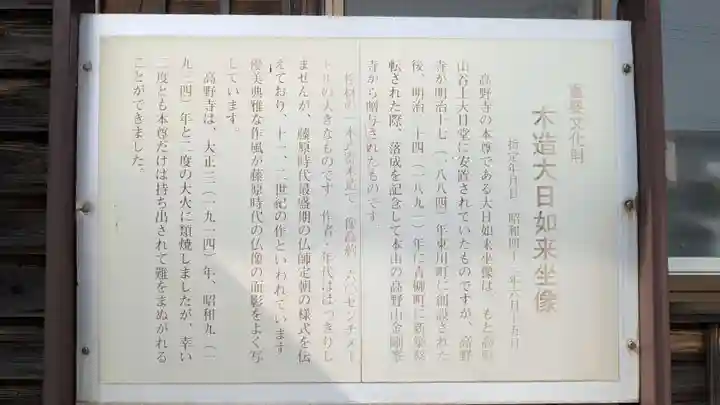 重要文化財
木造大日如来坐像
指定年月日 昭和四十 年六月十五日
高野寺の本尊である大日如来坐像は、もと高野
山谷上大日堂に安置されていたものですが、高野
寺が明治十七(一八八四)年東川町に創設された
後、明治二十四(一八九一)年に青柳町に新築移
転された際、落成を記念して本山の高野山金剛峯
寺から贈与されたものです
の一木式寄木造で 像高約一六〇センチメー
トルの大きなものです 作者・年代ははっきりし
ませんが、藤原時代最盛期の仏師定朝の様式を伝
えており、十一、二世紀の作といわれています
優美典雅な作風が藤原時代の仏像の面影をよく写
しています。
高野寺は、大正三(一九一四)年、昭和九(一
九三四)年と二度の大火に類焼しましたが、幸い
二度とも本尊だけは持ち出されて難をまぬがれる
ことができました。